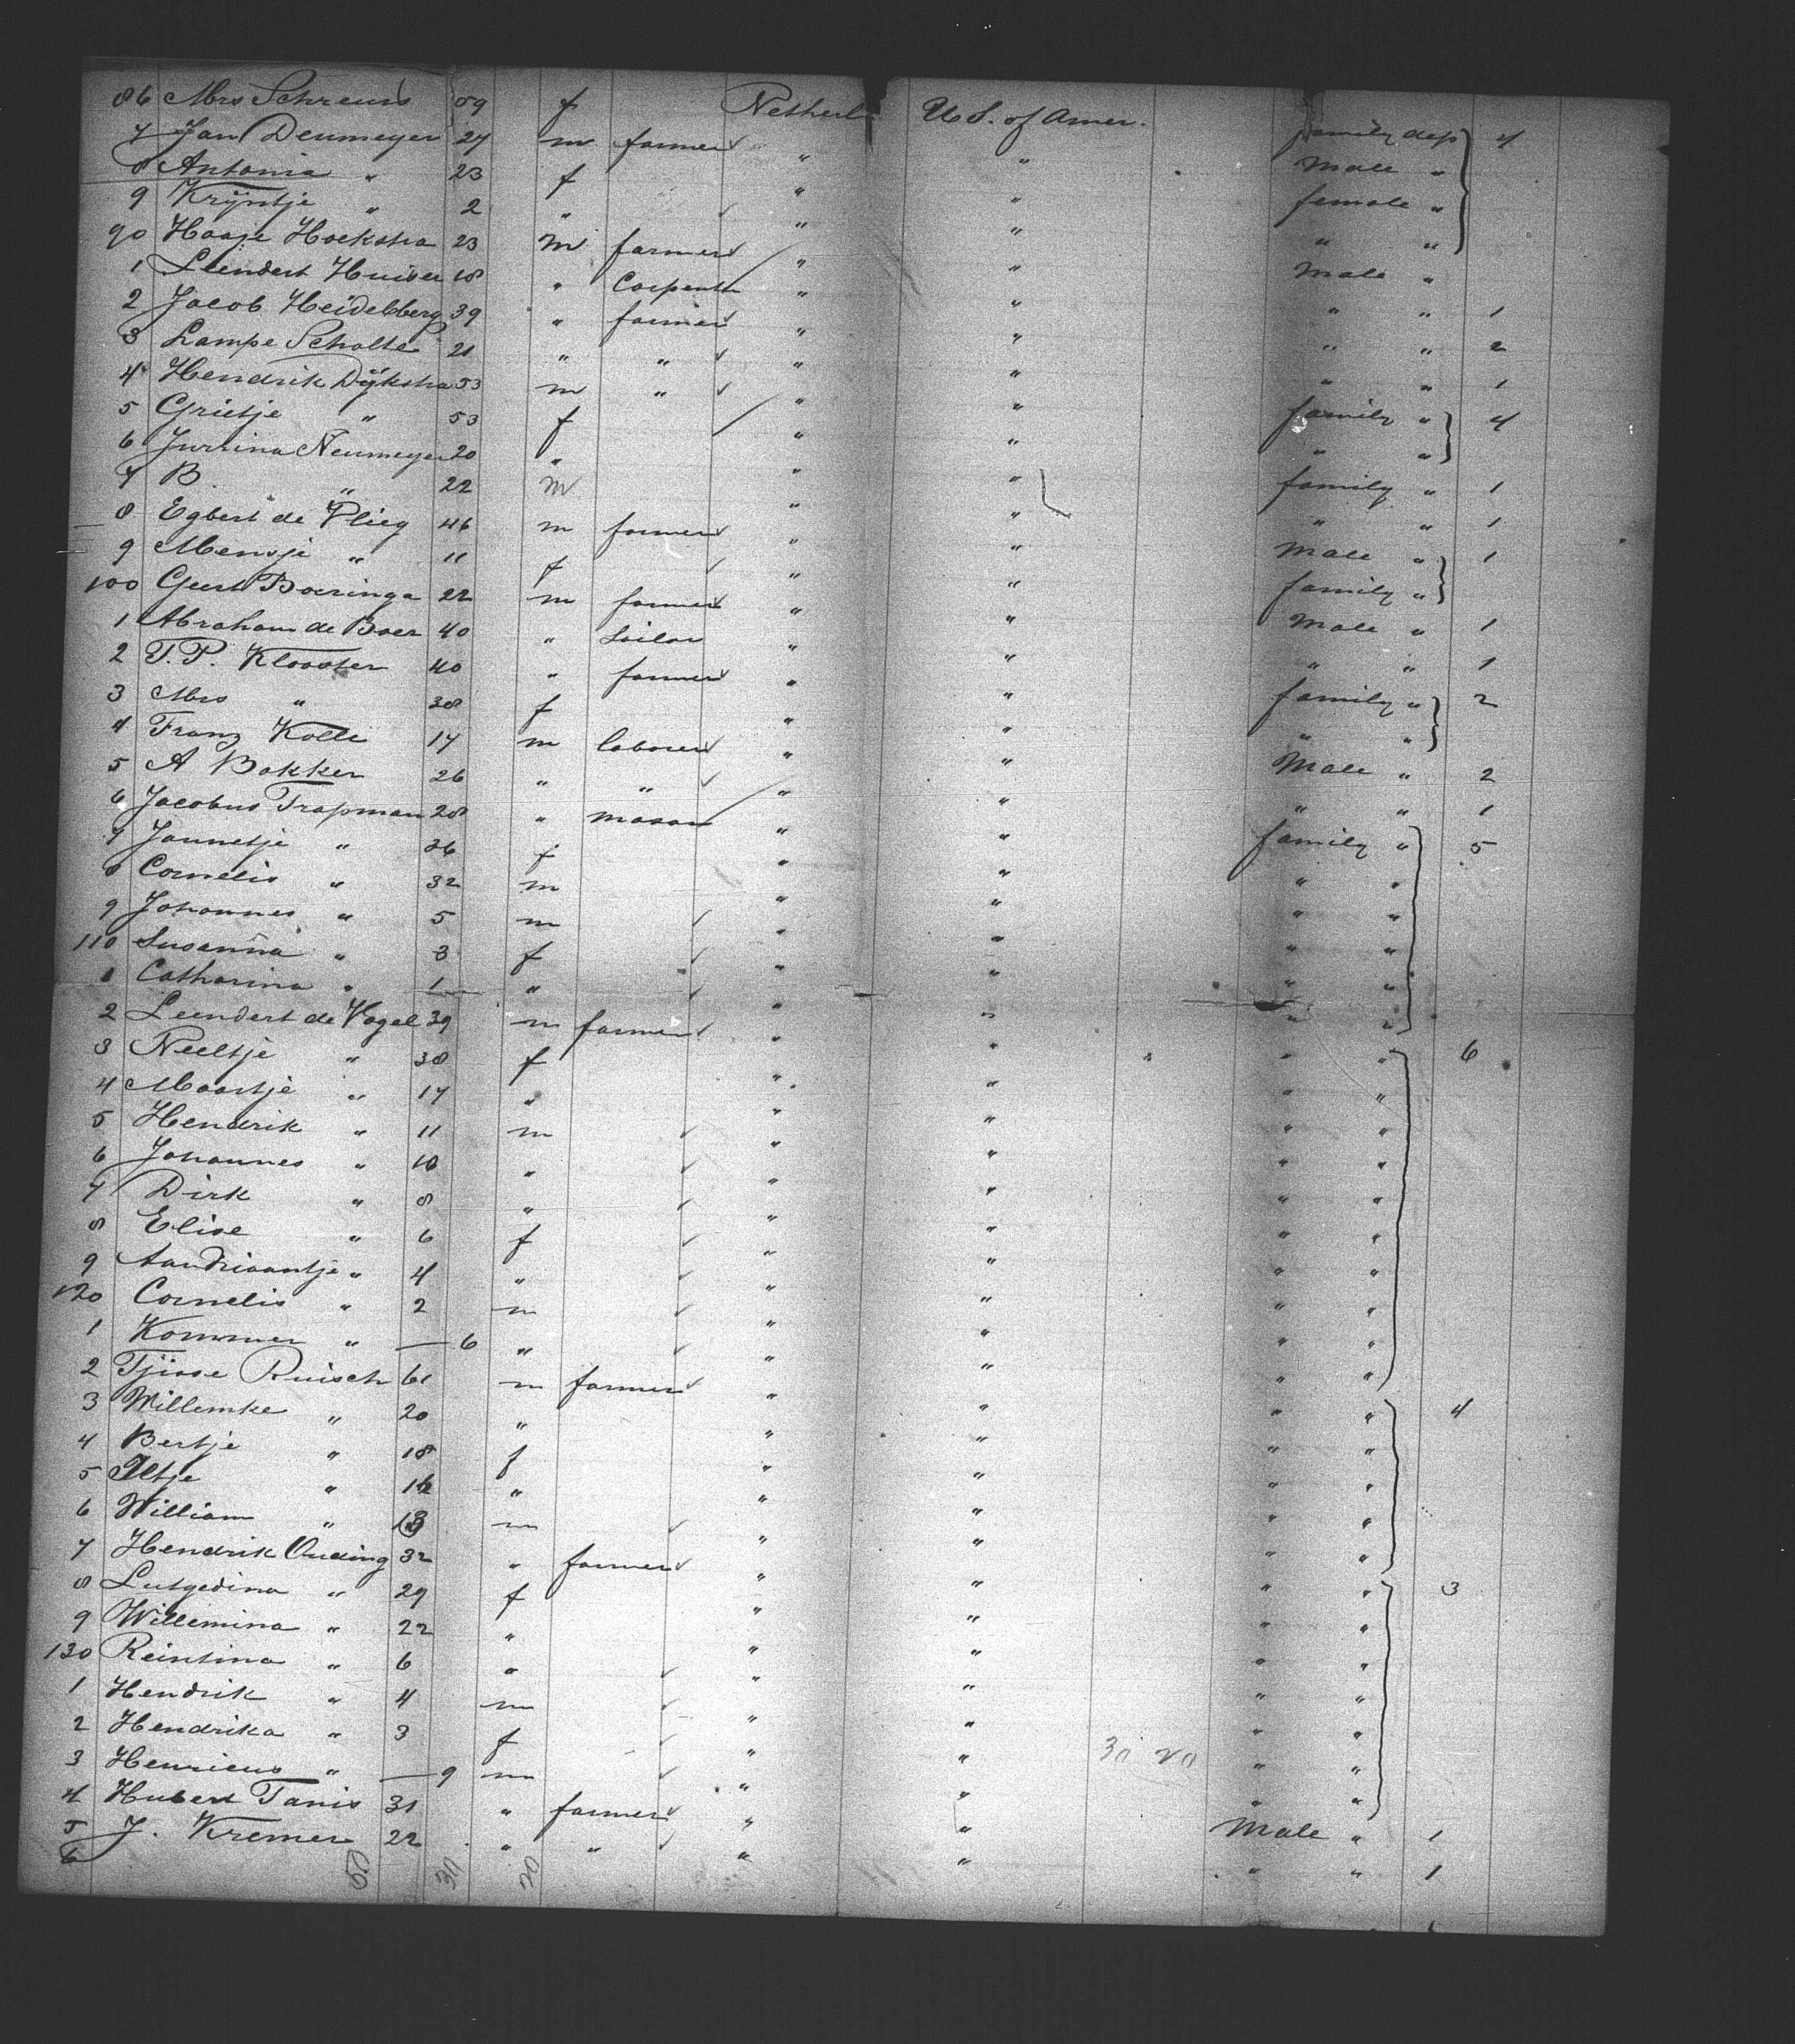 86 Mrs Schreurs 59 f Netherl U.S. of Amer. family dep 4
7 Jan Deumeyer 27 m farmer " " Male "
8 Antonia " 23 f " " female "
9 Krijntje " 2 " " " " "
90 Haaje Hoekstra 23 m farmer " " Male "
1 Leendert Huiser 18 " Carpenter " " " " 1
2 Jacob Heidelberg 39 " farmer " " " " 2
3 Lampe Scholte 21 " " " " " " 1
4 Hendrik Dijkstra 53 m " " " family " 4
5 Grietje " 53 f " " " "
6 Jurrina Neumeyer 20 " " " family " 1
7 B. " 22 m " " " " 1
8 Egbert de Plieg 46 m farmer " " Male " 1
9 Mensje " 11 f " " family "
100 Geert Boeringa 22 m farmer " " Male " 1
1 Abraham de Boer 40 " Sailor " " " " 1
2 T. P. Klooster 40 " farmer " " family " 2
3 Mrs " 38 f " " " "
4 Franz Kolle 17 m laborer " " Male " 2
5 A Bakker 26 " " " " " " 1
6 Jacobus Trapman 28 " mason " " family " 5
7 Jannetje " 36 f " " " "
8 Cornelis " 32 m " " " "
9 Johannes " 5 m " " " "
110 Susanna " 3 f " " " "
1 Catharina " 1 " " " " "
2 Leendert de Vogel 39 m farmer " " " " 6
3 Neeltje " 38 f " " " "
4 Maartje " 17 " " " " "
5 Hendrik " 11 m " " " "
6 Johannes " 10 " " " " "
7 Dirk " 8 " " " " "
8 Elise " 6 f " " " "
9 Aandriaantje " 4 " " " " "
120 Cornelis " 2 m " " " "
1 Kommer " — 6 " " " " "
2 Tjisse Ruisch 61 m farmer " " " " 4
3 Willemke " 20 " " " " "
4 Bertje " 18 f " " " "
5 Iltje " 16 " " " " "
6 William " 13 m " " " "
7 Hendrik Onding 32 " farmer " " " " 3
8 Lutgedina " 29 f " " " "
9 Willemina " 22 " " " " "
130 Reintina " 6 " " " " "
1 Hendrik " 4 m " " " "
2 Hendrika " 3 f " " " "
3 Henricus " — 9 m " " 30 20 " "
4 Hubert Tanis 31 " farmer " " Male " 1
5 J. Kremer 22 " " " " " " 1
6
50 30 20